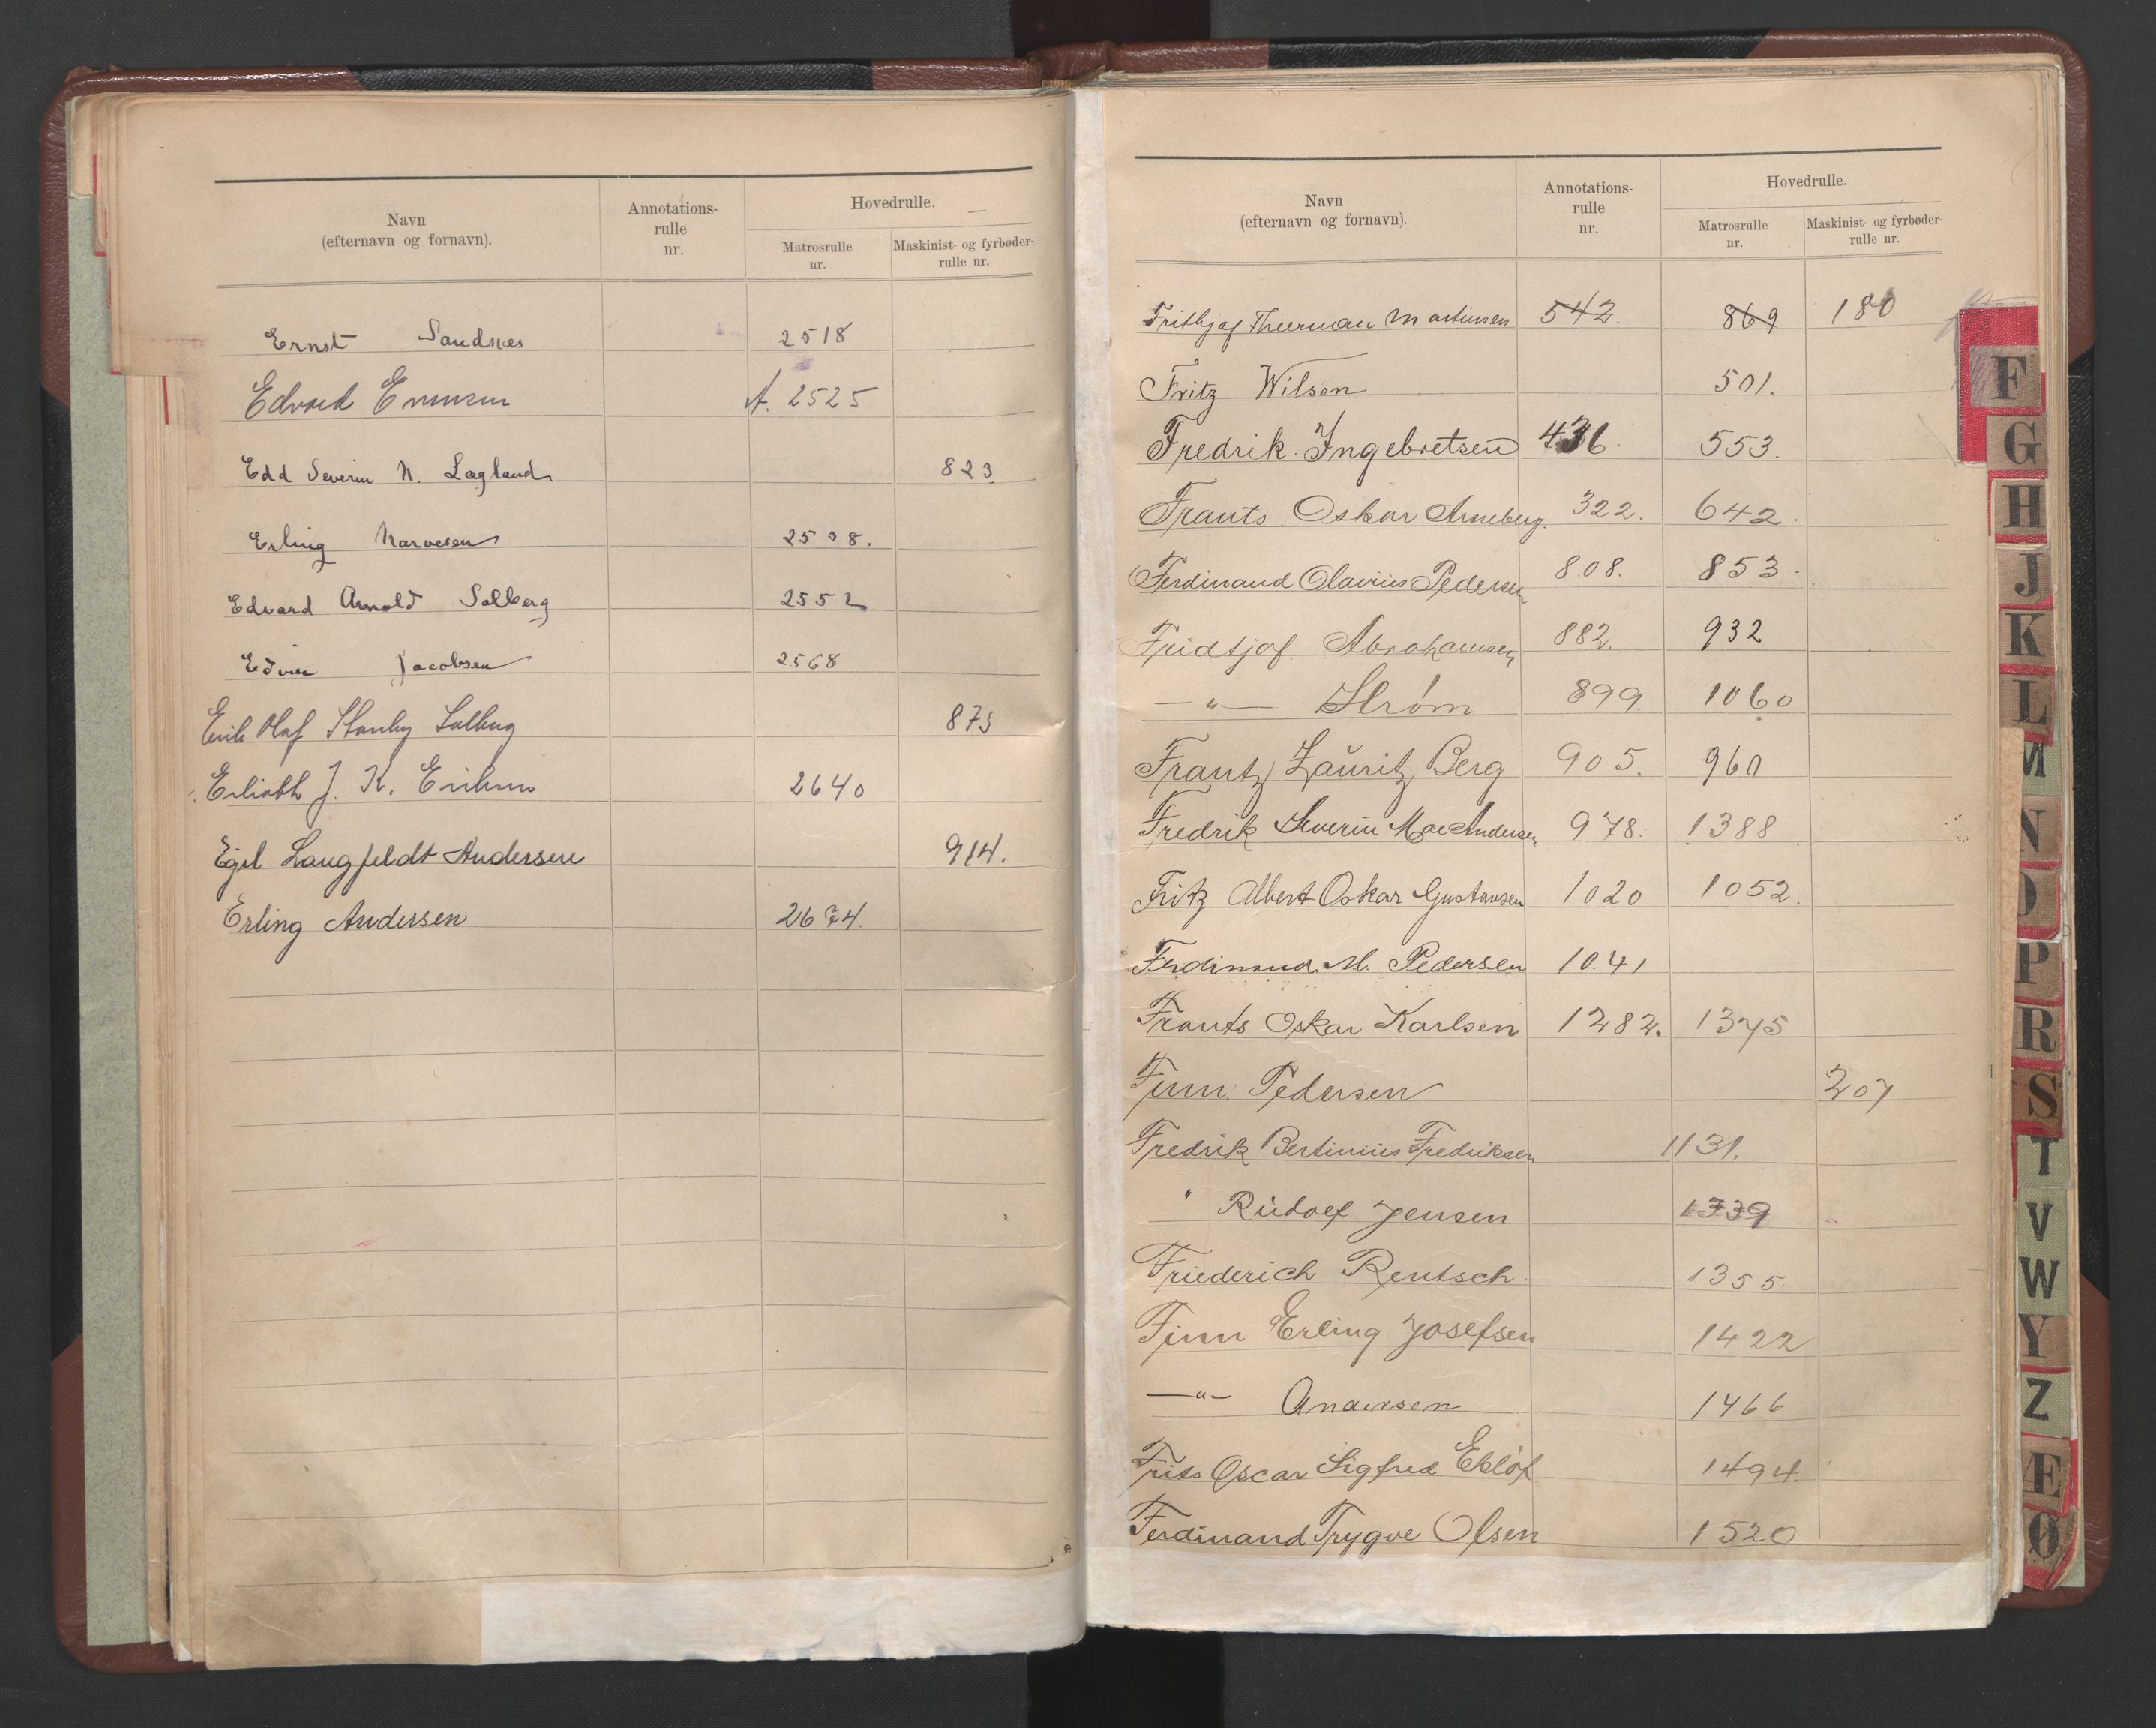 Navn
(efternavn og fornavn).
Annotations-
rulle
nr.
Hovedrulle.
Matrosrulle
nr.
Maskinist- og fyrbøder-
rulle nr.
Ernst Sandnes 2518
Edvard A. 2525
Edd Severin N. Lagland 823
Erling Narvesen
Edvard Arnold Solberg 2552
Edvin Jacobsen 2568
Erik Olaf Stanley Solberg 875
J. K. 2640
Egil Langfeldt Andersen 914.
Erling Andersen 2674.
Navn
(efternavn og fornavn).
Annotations-
rulle
nr.
Hovedrulle.
Matrosrulle
nr.
Maskinist- og fyrbøder-
rulle nr.
Frithjof Martinsen 542. 869 180
Fritz Wilson 501.
Fredrik Ingebretsen 436. 553.
Frants Oskar Arneberg. 322. 642.
Ferdinand Olavius Pedersen 808. 853.
Fridtjof Abrahamsen 882. 932
—"— Strøm 899. 1060
Frantz Lauritz Berg 905. 960
Fredrik Severin Moe Andersen 978. 1388
Fritz Albert Oskar Gustavsen 1020 1052.
Ferdinand M. Pedersen 1041
Frants Oskar Karlsen 1282. 1375
Finn Pedersen 207
Fredrik Bertinius Fredriksen 1131.
" Rudolf Jensen 1339
Friederich Rentsch 1355.
Finn Erling Josefsen 1422
—"— Andersen 1466
Frits Oscar Sigfred Eklöf 1494.
Ferdinand Trygve Olsen 1520
F
G
H
J
K
L
M
N
O
P
R
S
T
V
W
Y
Z
Æ
Ø